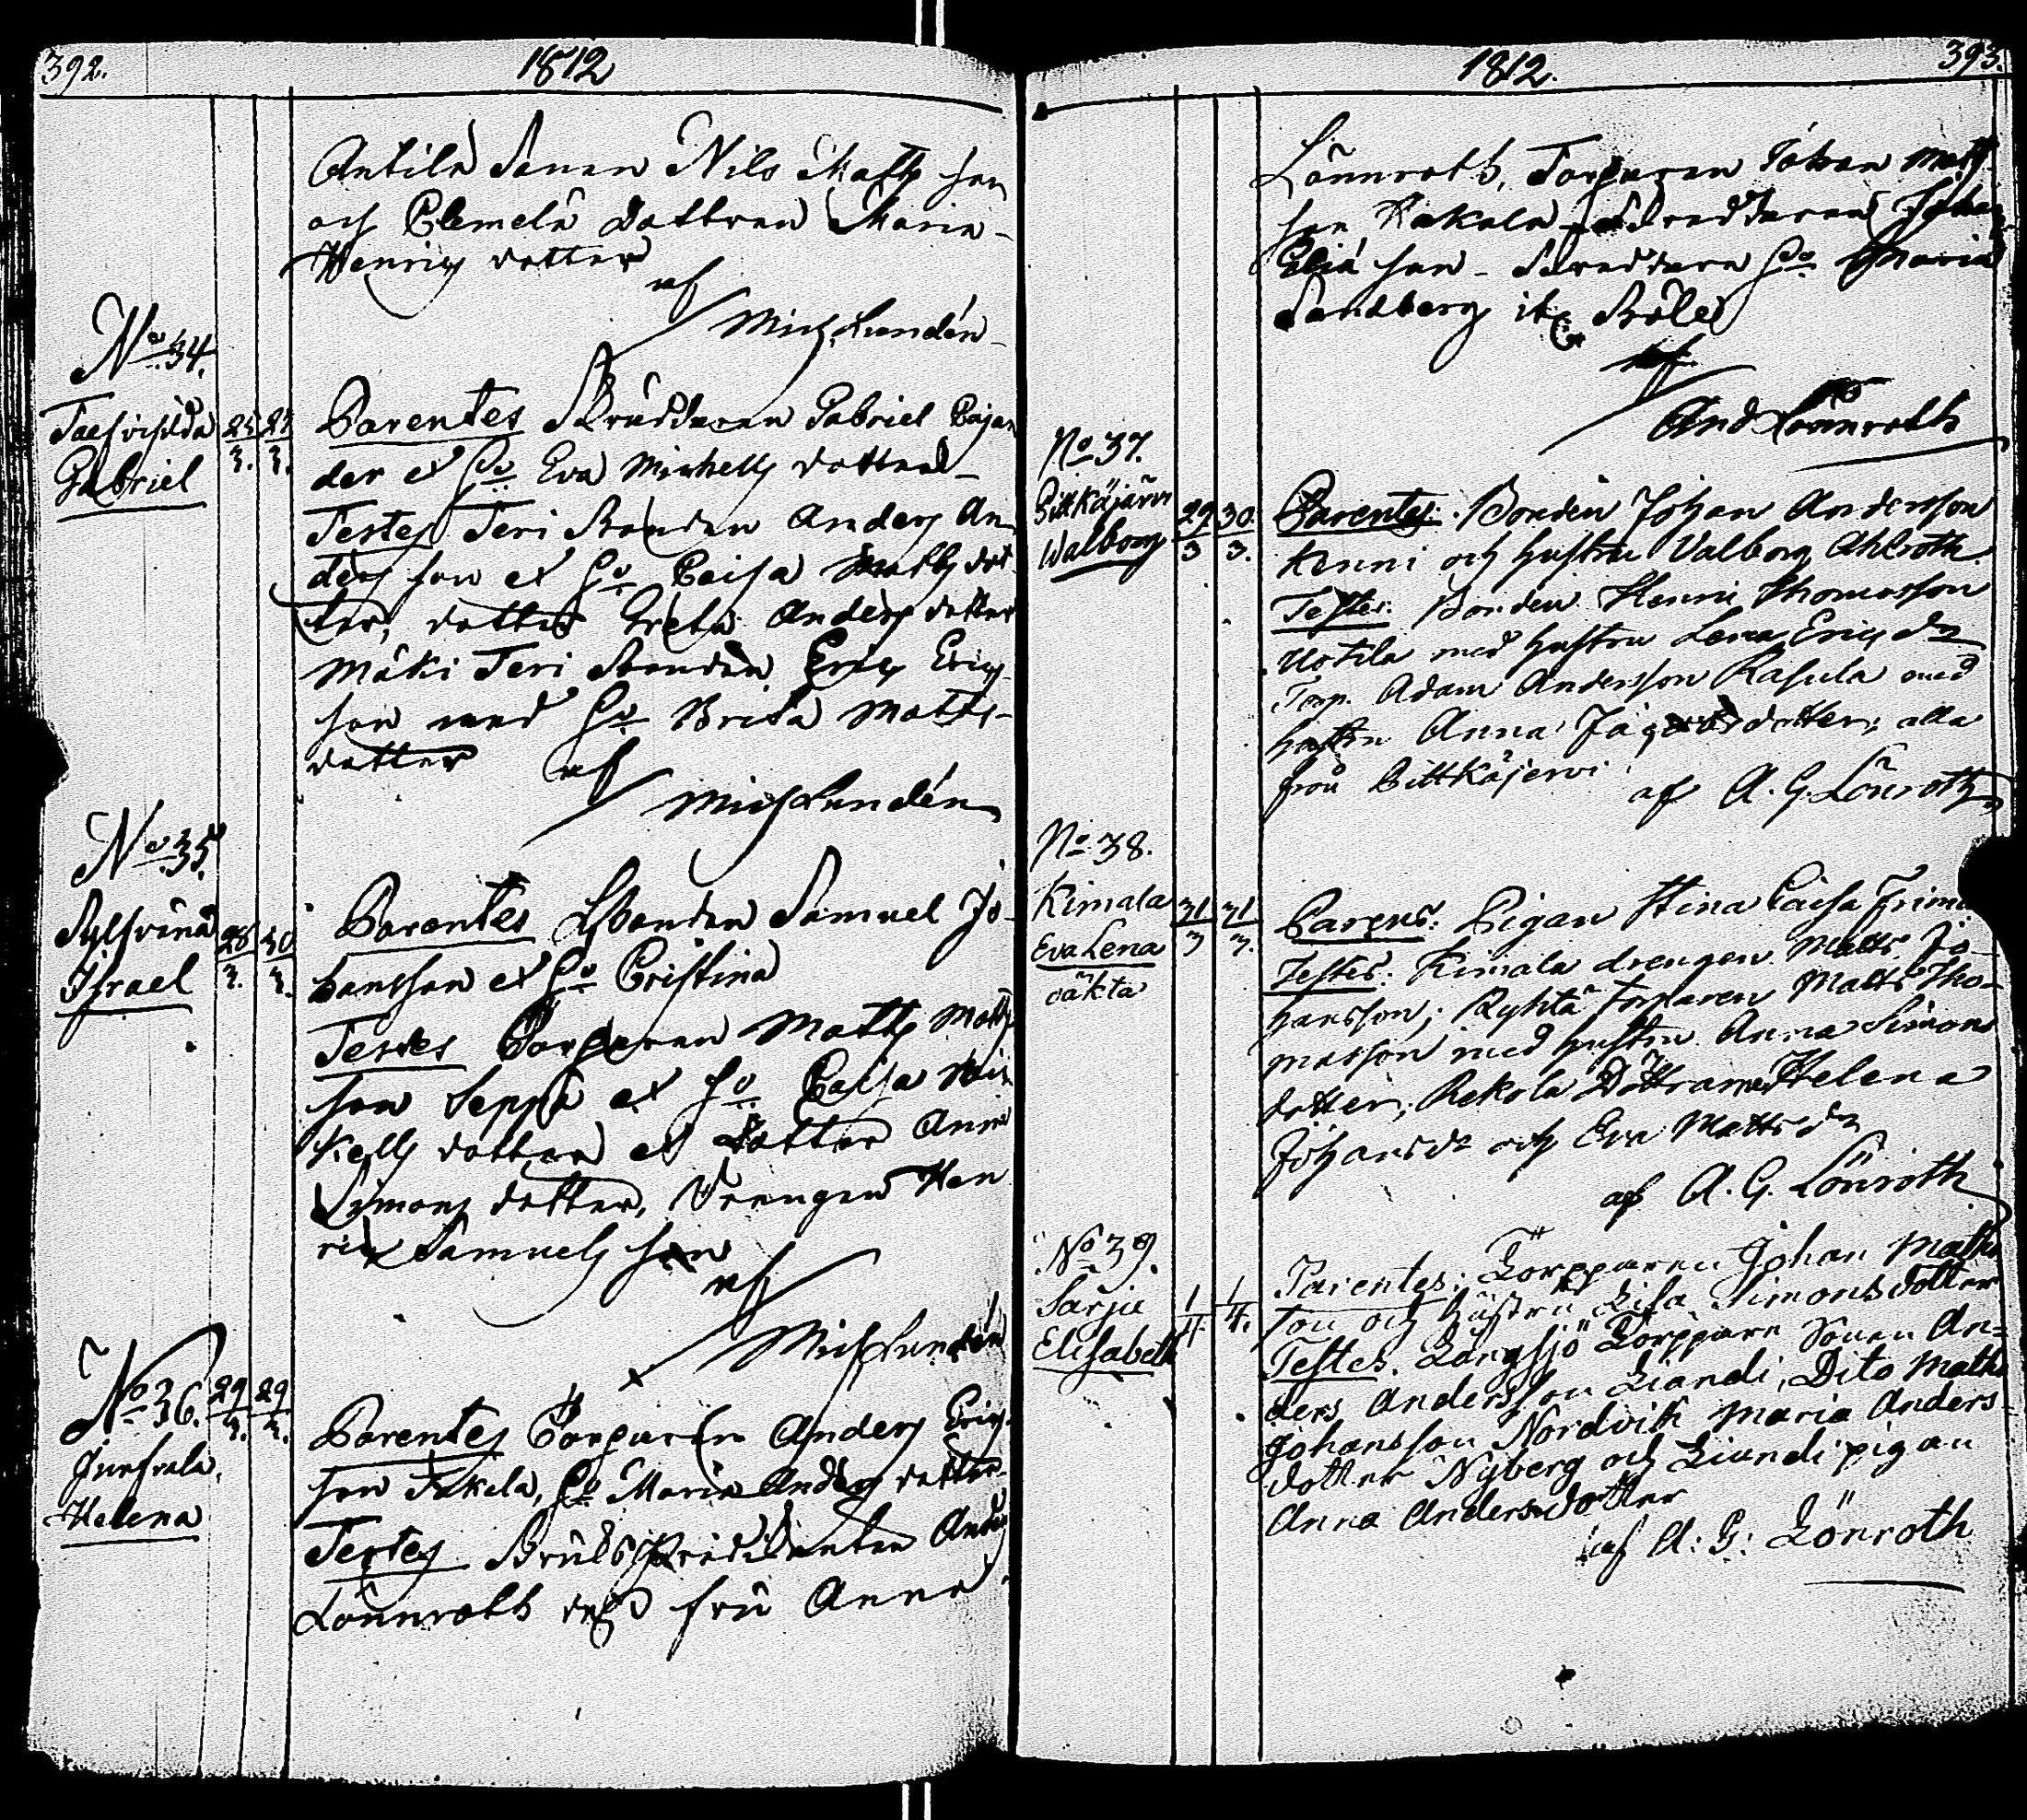 392.
1812
Antila Sonen Nils Matts son
och Clemelä Dottren Maria
Henrics dotter
af
Mich Lundén
No 34.
Gabriel
25/3. 27/3.
Parentes Skräddaren Gabriel Cajan
der et Hu Eva Michells dotter
Testes Teri Bonden Anders An
ders son et Hu Caisa Matts dot
ter, dotter Greta Anders dotter
Mäki Teri Bonden Eric Erics
son med Hu Brita Matts
dotter
af
Mich Lundén
No 35.
Israel
28/3. 30/3.
Parentes Bonden Samuel Jo
hansson et Hu Cristina
Testes Torparen Matts Matts
son Seppä et Hu Caisa Mic
kells dotter et Dotter Anna
Simons dotter, Drengen Hen
ric Samuels son
af
Mich Lundén
No 36.
29/3. 29/3.
Helena
Parentes Torparen Anders Erics
son Hu Maria Anders dotter
Testes Bruks Anders
Lönnroth dess fru Anna
1812.
393.
Lönnroth, Torparen Johan Matts
son Kakola Skreddaren Johan
Eliä son Skreddare Hu Maria
Sandberg
af
And Lönnroth
No 37.
Pitkäjärvi
Walborg
29/3 30/3.
Parentes: Bonden Johan Andersson
Kenni och hustru Valborg Ahlroth
Testes: Bonden Henric Thomasson
Uotila med hustru Lena Erics dr
Torp. Adam Andersson Rasula med
hustru Anna dotter, alla
från Pittkäjervi
af A. G. Lönroth
No 38.
Kimala
Eva Lena
oäkta
31/3 31/3.
Parens: Pigan Stina Caisa
Testes: Kimala drengen Matts Jo-
hansson; Ryhtä Torparen Matts Tho-
masson med hustru Anna Simons
dotter; Rekola Döttrarne Helena
Johansdr och Eva Mattsdr
af A. G. Lönroth
No 39.
Sarju
Elisabeth
1/4. 1/4.
Parentes: Torpparen Johan Matts
son och hustru Lisa Simonsdotter
Testes. Långsjö Torppare Sonen An=
ders Andersson Liandi, Dito Matts
Johansson Nordvik Maria Anders
dotter Nyberg och Liandi pigan
Anna Andersdotter
af A: G: Lönroth